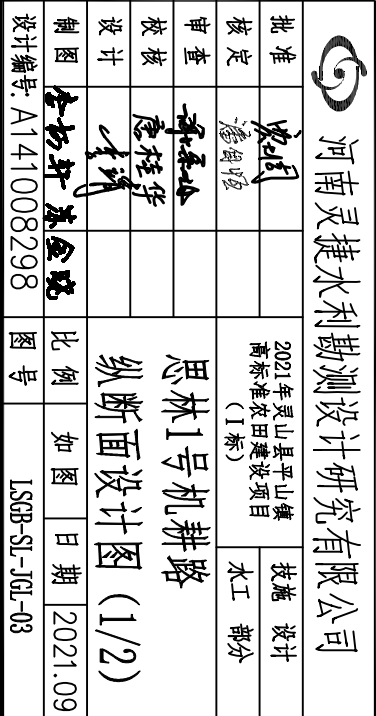 河南灵捷水利勘测设计研究有限公司
批准
核定
潘旬恒
审查
校核
廖桂华
设计
李靖
制图
设计编号:A141008298
2021年灵山县平山镇
高标准农田建设项目
(Ⅰ标)
技施 设计
水工 部分
思林1号机耕路
纵断面设计图(1/2)
比例 如图 日期 2021.09
图号 LSGB-SL-JGL-03